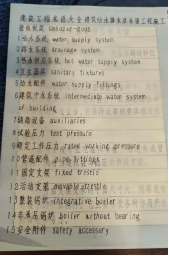 建筑工程术语大全 建筑给水排水及采暖工程施工
验收规范 GB50242-2002
1 给水系统 water supply system
2 排水系统 drainage system
3 热水供应系统 hot water supply system
4 卫生器具 sanitary fixtures
5 给水配件 water supply fittings
6 建筑中水系统 intermediate water system
of building
7 辅助设备 auxiliaries
8 试验压力 test pressure
9 额定工作压力 rated working pressure
10 管道配件 pipe fittings
11 固定支架 fixed trestle
12 活动支架 movable trestle
13 整装锅炉 integrative boiler
14 非承压锅炉 boiler without bearing
15 安全附件 safety accessory